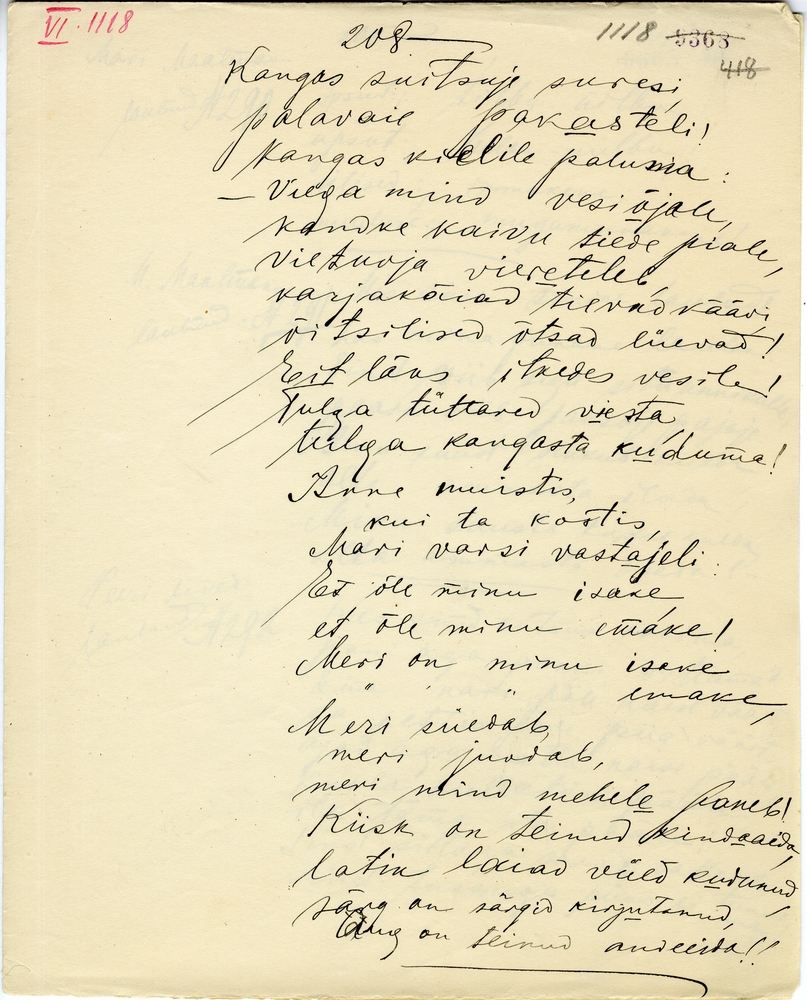 VI. 1118
208
1118 9363
418
Kangas suitsuje suresi,
palavaie pakasteli!
Kangas kielile paluma:
— Viega mind vesiõjale,
kandke kaivu tiede piale,
vietuoja vieretele,
karjakäiad tievad käävi,
õitsilised õtsad lüevad!
Eit läks itkedes vesile!
Tulga tüttared viesta,
tulga kangasta kuduma!
Anne muistis,
kui ta kostis,
Mari varsi vastajeli:
Et õle minu isake
et õle minu emake!
Meri on minu isake
" " " emake,
Meri süedab,
meri juodab,
meri mind mehele paneb!
Kiisk on teinud kindaaida,
latik laiad vüed kudunud,
särg on särgid kirjutanud,
Aug on teinud andeeida!!